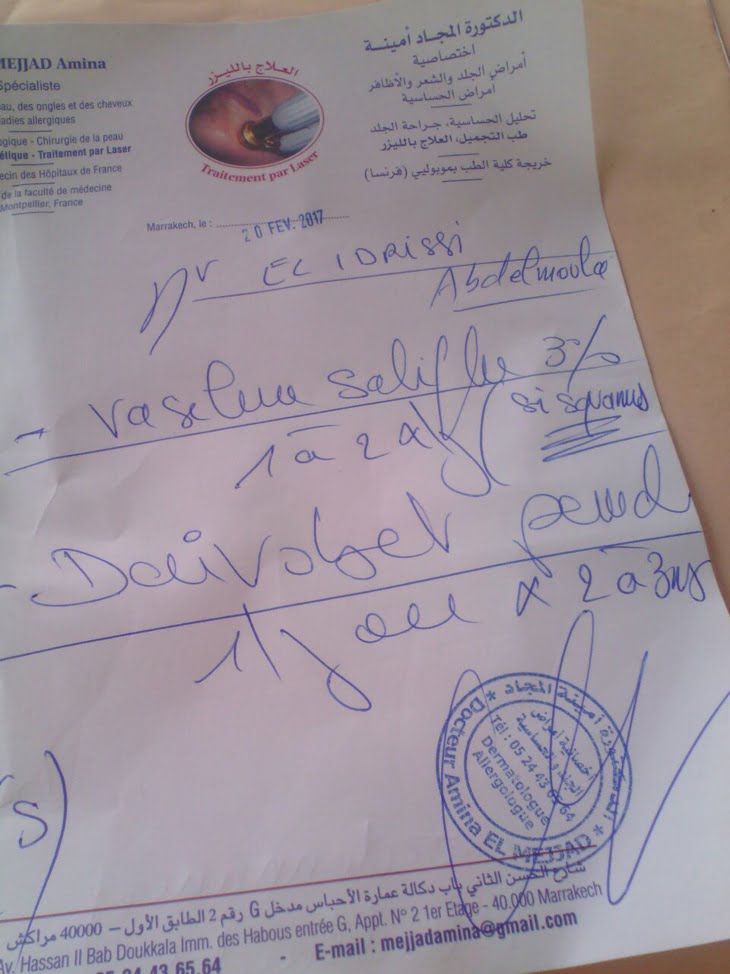 MEJJAD Amina
Spécialiste
eau, des ongles et des cheveux
adies allergiques
ogique - Chirurgie de la peau
étique - Traitement par Laser
ecin des Hôpitaux de France
de la faculté de médecine
Montpellier, France
العلاج بالليزر
Traitement par Laser
الدكتورة المجاد أمينة
اختصاصية
أمراض الجلد والشعر والأظافر
امراض الحساسية
تحليل الحساسية، جراحة الجلد
طب التجميل، العلاج بالليزر
خريجة كلية الطب بمونبوليي (فرنسا)
Marrakech, le :
20 FEV. 2017
Mr EL IDRISSI
Abdelmoula
- Vaseline salifylee 3%
1 à 2 x/j (si squames
- Daivobet pomd
1/j x 2 à 3
الدكتورة أمينة المجاد
اخصائية أمراض
الجلد والحساسية
Tél : 05 24 43 65 64
Dermatologue
Allergologue
Docteur Amina EL MEJJAD
شارع الحسن الثاني باب دكالة عمارة الأحباس مدخل G رقم 2 الطابق الأول – 40000 مراكش
Av. Hassan II Bab Doukkala Imm. des Habous entrée G, Appt. N° 2 1er Etage - 40.000 Marrakech
05 24 43 65 64 - E-mail : mejjadamina@gmail.com